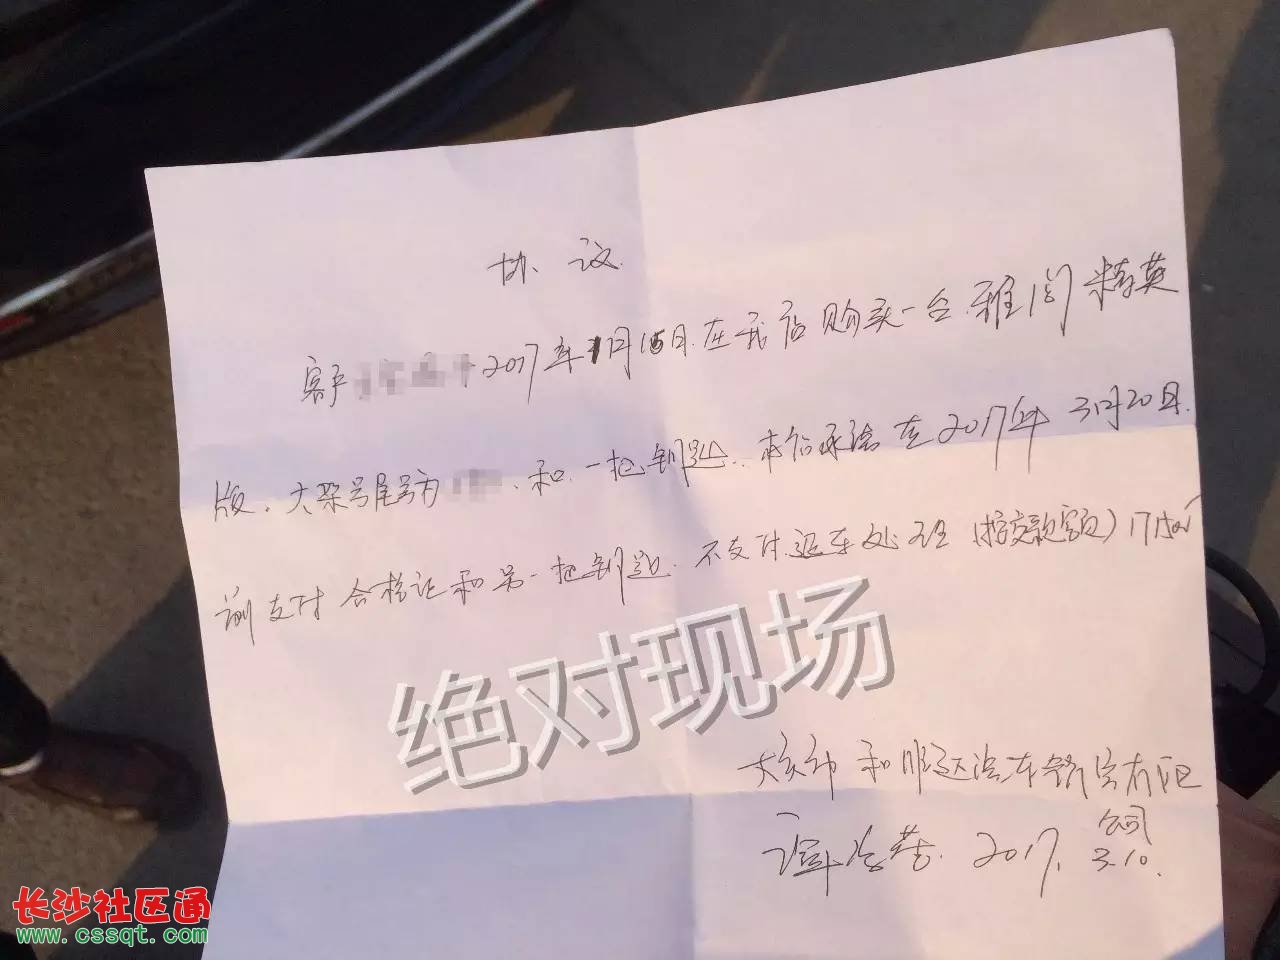 协议
客户 2017年1月15日.在我店购买一台.雅阁精英
版。大架号尾号为 .和.一把钥匙.本公司承诺在2017年3月20日.
前支付合格证和另一把钥匙.不支付.退车处理(按交款金额)
绝对现场
大庆市和顺达汽车销售有限
公司
2017.3.10.
长沙社区通
www.cssqt.com